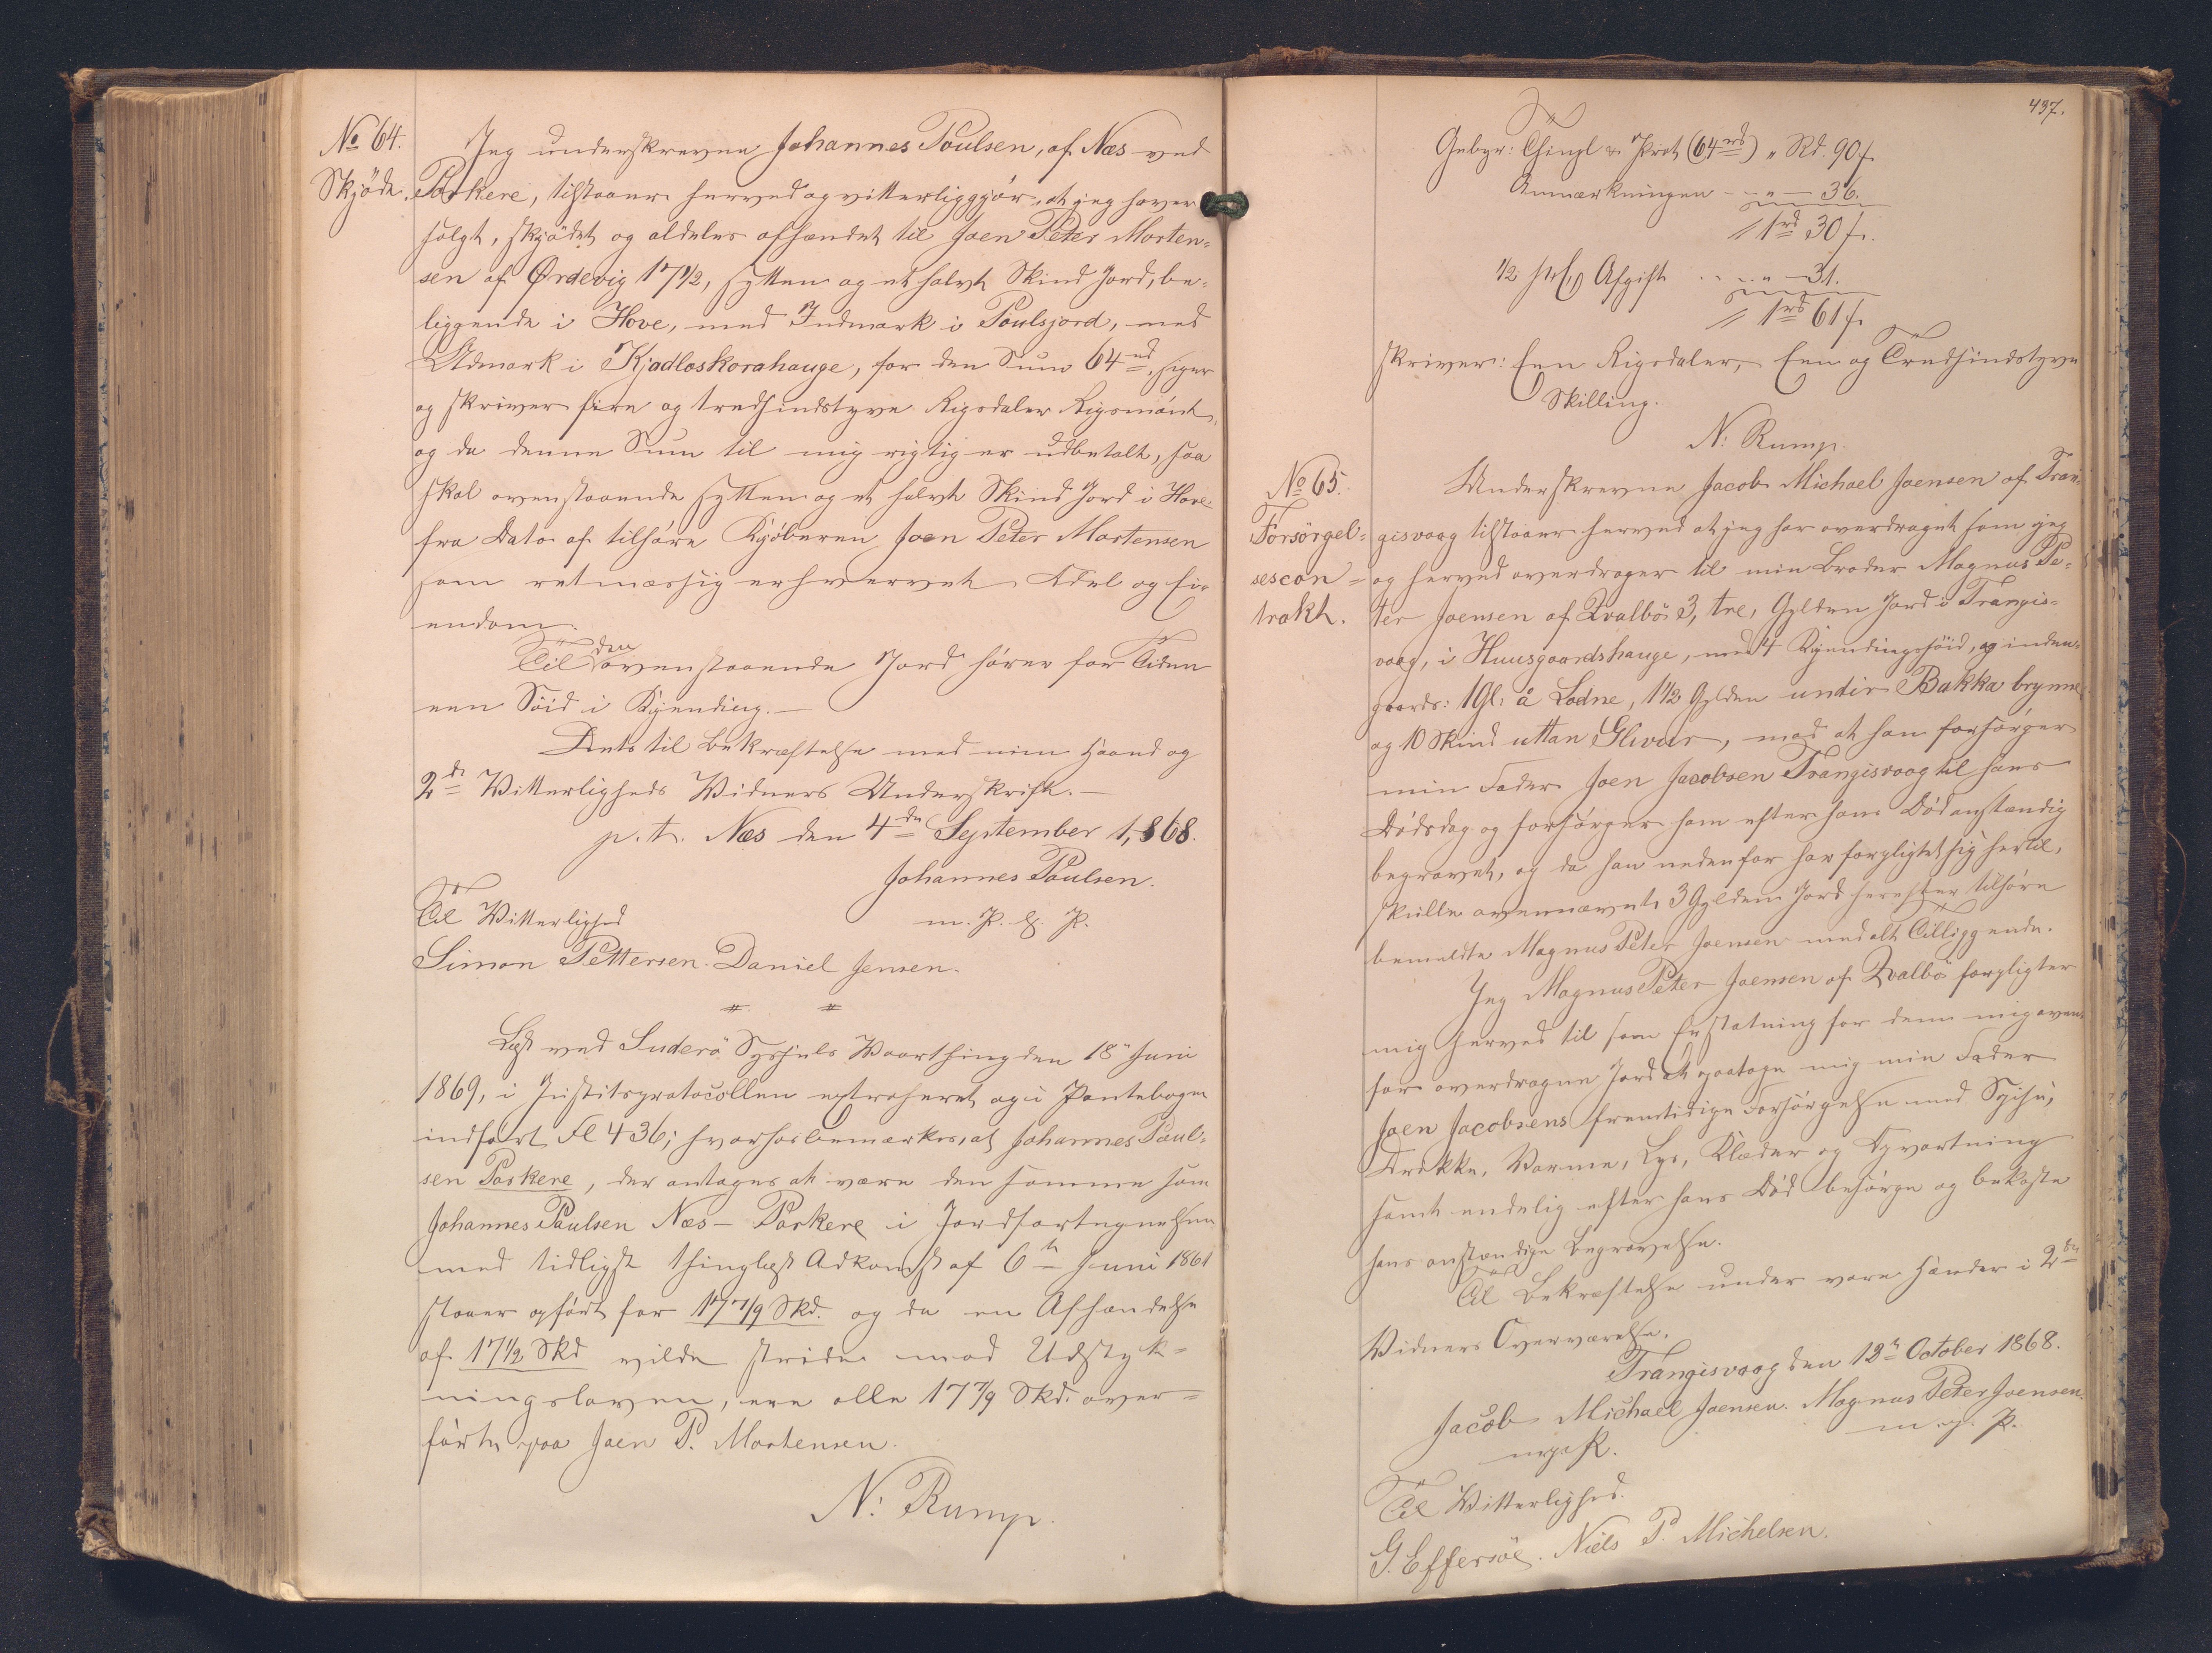 No 64.
Skjöde.
Jeg underskrevne Johannes Poulsen, af Næs ved
Porkere, tilstaaer herved og vitterliggjör, at jeg haver
solgt, skjödet og aldeles afhændet til Joen Peter Morten-
sen af Ørdevig 17 1/2, sytten og et halvt Skind Jord, be-
liggende i Hove, med Indmark i Poulsjord, med
Udmark i Kjadloskorahauge, for den Sum 64 rd, siger
og skriver fire og tredsindstyve Rigsdaler Rigsmönt,
og da denne Sum til mig rigtig er udbetalt, saa
skal ovenstaaende sytten og et halvt Skind Jord i Hove
fra Dato af tilhöre Kjöberen Joen Peter Mortensen
som retmæssig erhvervet Odel og Ei-
endom.
Til den ovenstaaende Jord hörer for Tiden
een Söid i Kjending.—
Dets til Bekræftelse med min Haand og
2de Vitterligheds Vidners Underskrift.—
p. t. Næs den 4de September 1,868.
Johannes Poulsen.
m. P. & P.
Til Vitterlighed
Simon Pettersen. Daniel Jensen.
Læst ved Suderö Syssels Vaarthing den 18" Juni
1869, i Justitsprotocollen extraheret og i Pantebogen
indfört Fl 436; hvorhos bemærkes, at Johannes Poul-
sen Porkere, der antages at være den samme som
Johannes Poulsen Næs - Porkere i Jordfortegnelsen
med tidligst thinglæst Adkomst af 6te Juni 1861
staaer opfört for 17 7/9 Skd. og da en Afhændelse
af 17 1/2 Skd vilde stride mod Udstyk-
ningsloven, ere alle 17 7/9 Skd. over-
förte paa Joen P. Mortensen.
N. Rump.
437.
Gebyr: Thingl & Prot (64rd) " Rd. 90 s.
Anmærkningen - - " — 36.
1rd 30 s.
1/2 pCt Afgift . . . " — 31.
1rd 61 s.
skriver: Een Rigsdaler, Een og Tredsindstyve
Skilling.
N. Rump.
No 65.
Forsörgel-
sescon-
trakt.
Underskrevne Jacob Michael Joensen af Tran-
gisvaag tilstaaer herved at jeg har overdraget som jeg
og herved overdrager til min Broder Magnus Pe-
ter Joensen af Qvalbö 3, tre, Gylden Jord i Trangis-
vaag, i Huusgaardshauge, med 4 Kjendingssöid, og inden-
gaards: 1 Gl. å Lodne, 1 1/2 Gylden undir Bakka brynne
og 10 Skind uttan Glivur, mod at han forsörger
min Fader Joen Jacobsen Trangisvaag til hans
Dödsdag og forsörger ham efter hans Död anstændig
begravet, og da han nedenfor har forpligtet sig hertil,
skulle ovennævnte 3 Gylden Jord herefter tilhöre
bemeldte Magnus Peter Joensen med alt Tilliggende.
Jeg Magnus Peter Joensen af Qvalbö forpligter
mig herved til som Erstatning for den mig oven-
for overdragne Jord at paatage mig min Fader
Joen Jacobsens fremtidige Forsörgelse med Spise,
Drikke, Varme, Lys, Klæder og Opvartning
samt endelig efter hans Död besörge og bekoste
hans anstændige Begravelse.
Til Bekræftelse under vore Hænder i 2de
Vidners Overværelse.
Trangisvaag den 12te October 1868.
Jacob Michael Joensen. Magnus Peter Joensen.
m. p. P.
m. p. P.
Til Vitterlighed.
G. Effersöe. Niels P. Michelsen.